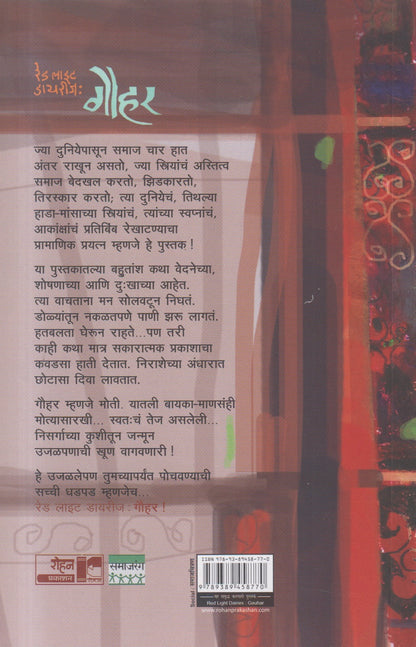 रेड लाइट
डायरीज :
गौहर
ज्या दुनियेपासून समाज चार हात
अंतर राखून असतो, ज्या स्त्रियांचं अस्तित्व
समाज बेदखल करतो, झिडकारतो,
तिरस्कार करतो; त्या दुनियेचं, तिथल्या
हाडा-मांसाच्या स्त्रियांचं, त्यांच्या स्वप्नांचं,
आकांक्षांचं प्रतिबिंब रेखाटण्याचा
प्रामाणिक प्रयत्न म्हणजे हे पुस्तक !
या पुस्तकातल्या बहुतांश कथा वेदनेच्या,
शोषणाच्या आणि दुःखाच्या आहेत.
त्या वाचताना मन सोलवटून निघतं.
डोळ्यांतून नकळतपणे पाणी झरू लागतं.
हतबलता घेरून राहते...पण तरी
काही कथा मात्र सकारात्मक प्रकाशाचा
कवडसा हाती देतात. निराशेच्या अंधारात
छोटासा दिवा लावतात.
गौहर म्हणजे मोती. यातली बायका-माणसंही
मोत्यासारखी... स्वतःचं तेज असलेली...
निसर्गाच्या कुशीतून जन्मून
उजळपणाची खूण वागवणारी !
हे उजळलेपण तुमच्यापर्यंत पोचवण्याची
सच्ची धडपड म्हणजेच...
रेड लाइट डायरीज : गौहर !
रोहन
प्रकाशन
समाजरंग
Social : समाजचित्रण
ISBN 978-93-89458-77-0
9 789389 458770
Red Light Diaries : Gouhar
www.rohanprakashan.com